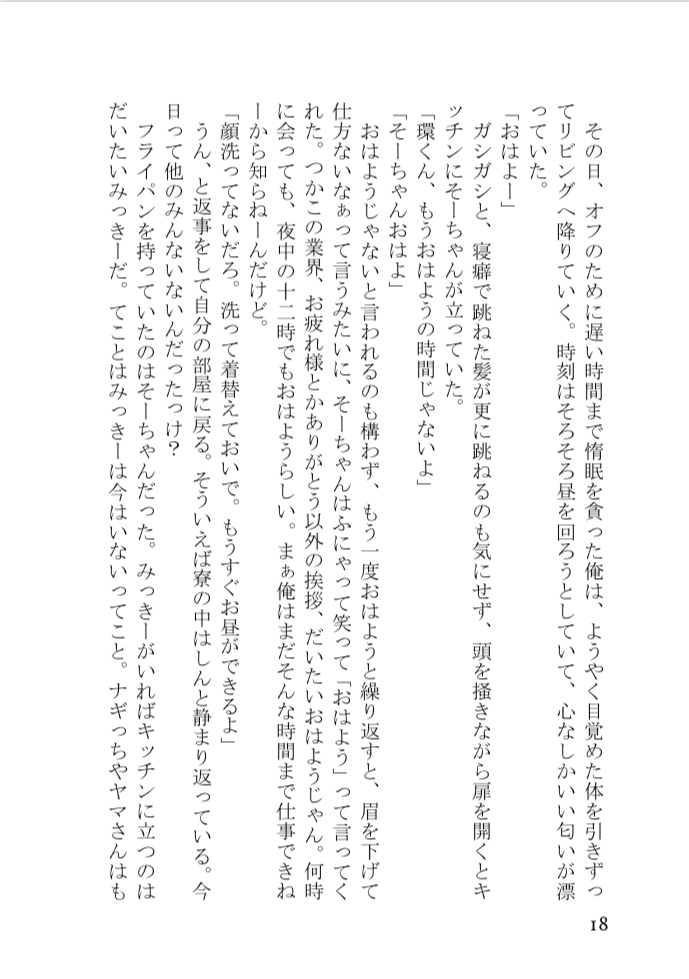 その日、オフのために遅い時間まで惰眠を貪った俺は、ようやく目覚めた体を引きずっ
てリビングへ降りていく。時刻はそろそろ昼を回ろうとしていて、心なしかいい匂いが漂
っていた。
「おはよー」
ガシガシと、寝癖で跳ねた髪が更に跳ねるのも気にせず、頭を掻きながら扉を開くとキ
ッチンにそーちゃんが立っていた。
「環くん、もうおはようの時間じゃないよ」
「そーちゃんおはよ」
おはようじゃないと言われるのも構わず、もう一度おはようと繰り返すと、眉を下げて
仕方ないなぁって言うみたいに、そーちゃんはふにゃって笑って「おはよう」って言ってく
れた。つかこの業界、お疲れ様とかありがとう以外の挨拶、だいたいおはようじゃん。何時
に会っても、夜中の十二時でもおはようらしい。まぁ俺はまだそんな時間まで仕事できね
ーから知らねーんだけど。
「顔洗ってないだろ。洗って着替えておいで。もうすぐお昼ができるよ」
うん、と返事をして自分の部屋に戻る。そういえば寮の中はしんと静まり返っている。今
日って他のみんないないんだったっけ？
フライパンを持っていたのはそーちゃんだった。みっきーがいればキッチンに立つのは
だいたいみっきーだ。てことはみっきーは今はいないってこと。ナギっちやヤマさんはも
18